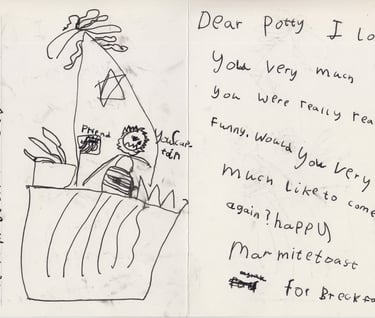 Friend
Dear Potty I lo
You very much
you were really rea
Funny. Would you very
much like to come
again? happy
Marmitetoast
for Breakfa